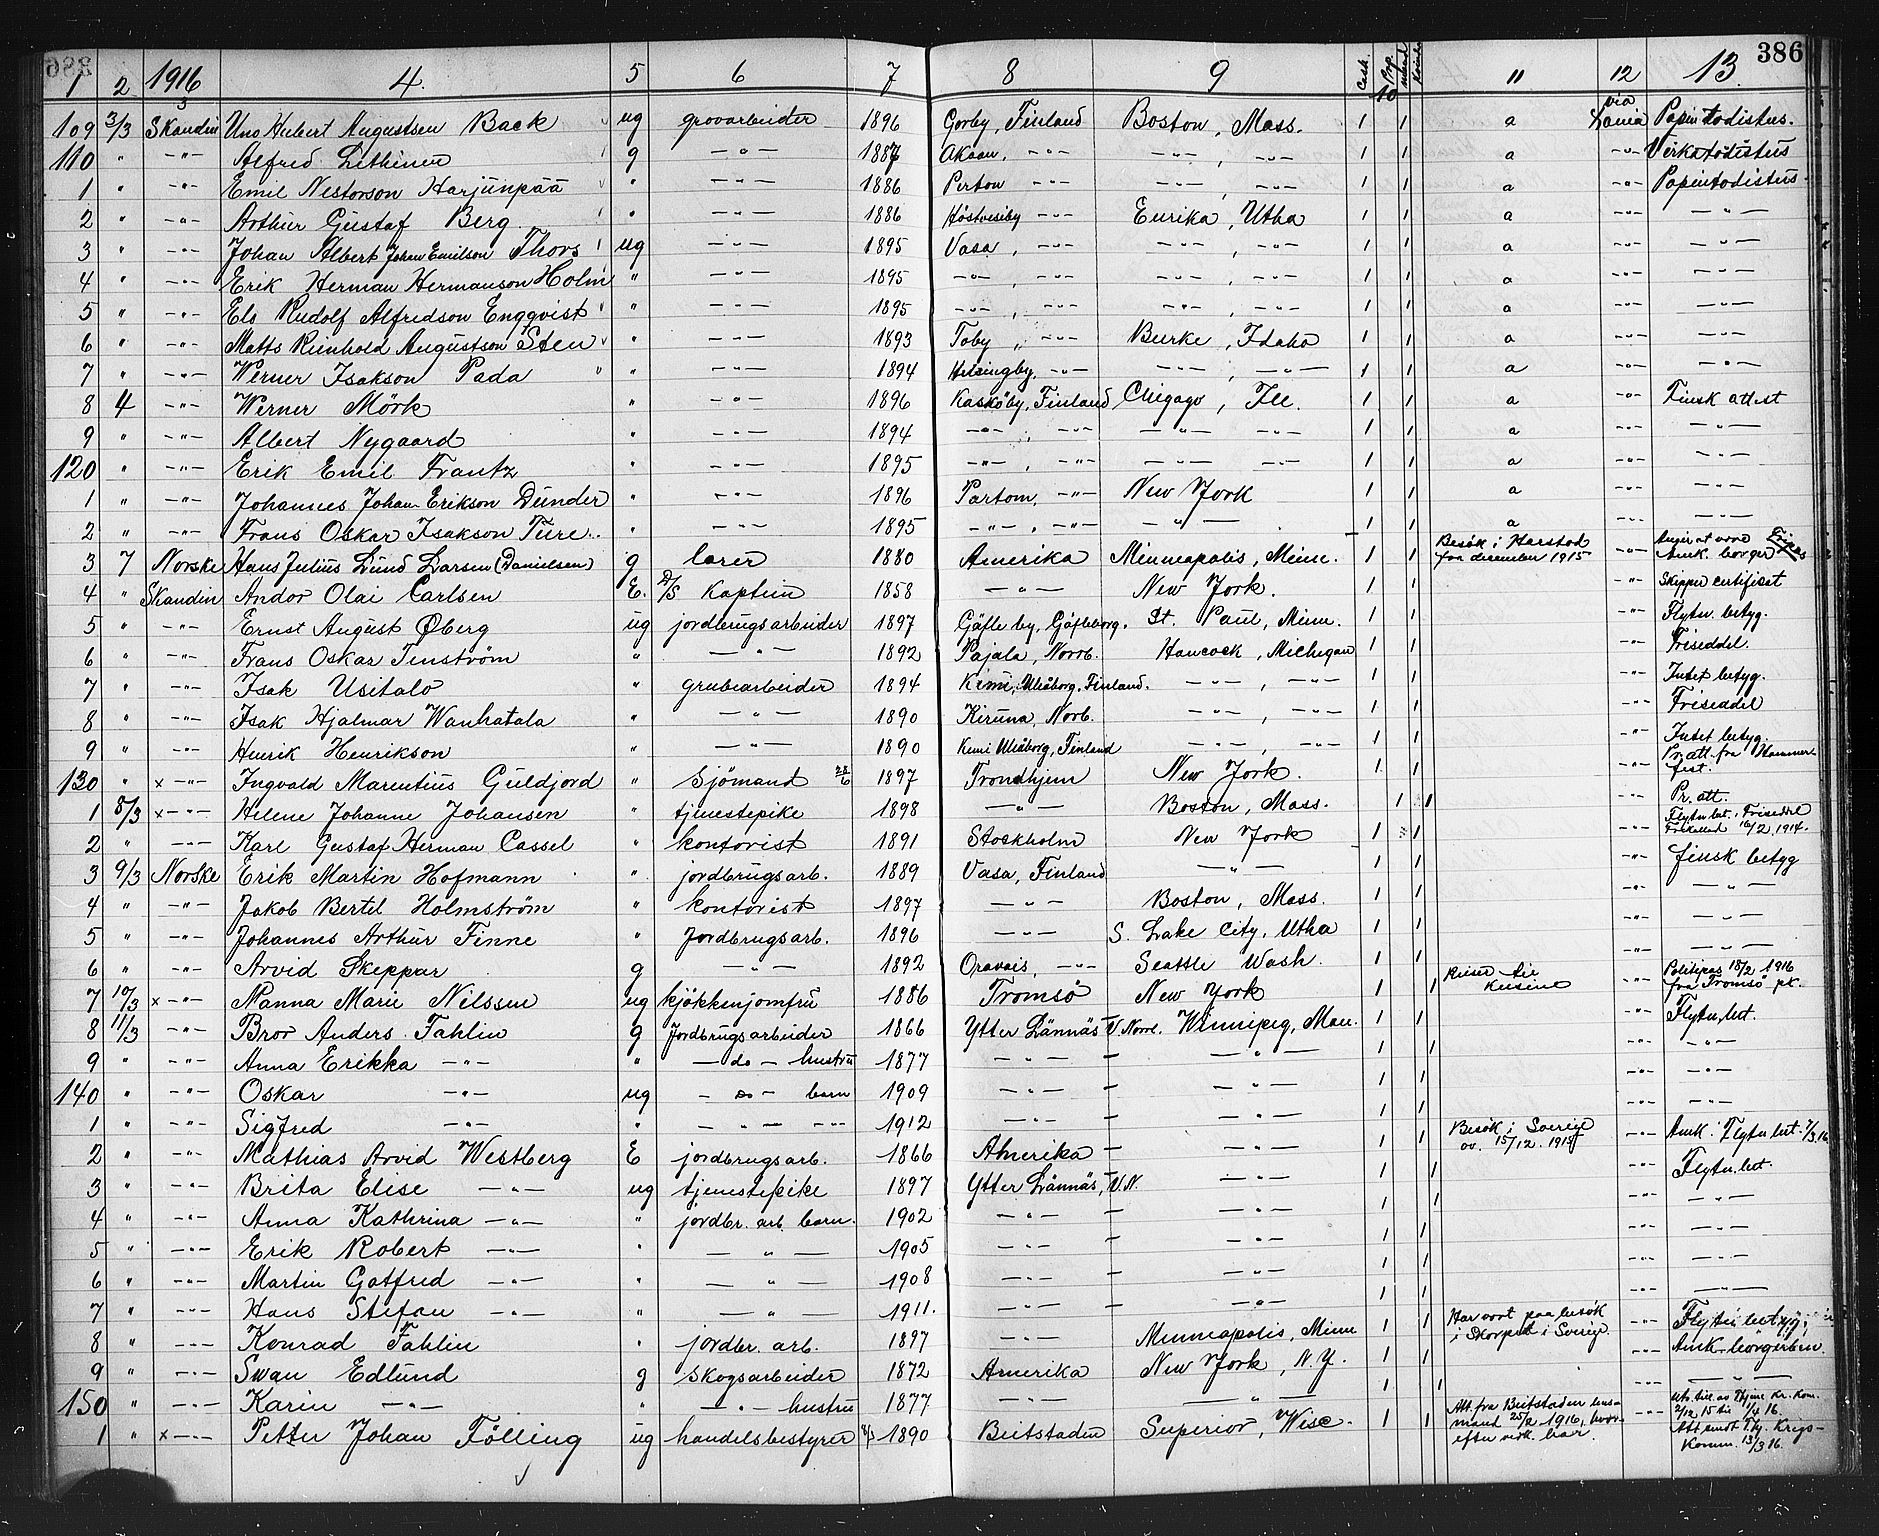 386
1 2 1916 3 4. 5 6 7 8 9 Cash. 10 11 12 13
109 3/3 Skandin Uno Hubert Augustsen Back ug grovarbeider 1896 Gorby, Finland Boston, Mass. 1 1 a via Lania Papintodistus.
110 " -"- Alfred Lethinen g -"- 1887 Akaan, -"- -"-, -"- 1 1 a -"- Virkatodistus
1 " -"- Emil Nestorson Harjunpää " -"- 1886 Perton -"- -"-, -"- 1 1 a -"- Papintodistus
2 " -"- Arthur Gustaf Berg " -"- 1886 Höstvesiby -"- Eurika, Utha 1 1 a -"- -"-
3 " -"- Johan Albert Johan Emilson Thors ug -"- 1895 Vasa, -"- -"-, -"- 1 1 a -"- -"-
4 " -"- Erik Herman Hermanson Holm " -"- 1895 -"-, -"- -"-, -"- 1 1 a -"- -"-
5 " -"- Els Rudolf Alfredson Engqvist " -"- 1895 -"-, -"- -"-, -"- 1 1 a -"- -"-
6 " -"- Matts Reinhold Augustson Sten " -"- 1893 Toby, -"- Burke, Idaho 1 1 a -"- -"-
7 " -"- Werner Isakson Pada " -"- 1894 Helsingby, -"- -"-, -"- 1 1 a -"- -"-
8 4 -"- Werner Mörk " -"- 1896 Kaskőby, Finland Chigago, Ill. 1 1 a -"- Finsk attest
9 " -"- Albert Nygaard " -"- 1894 -"-, -"- -"- -"- 1 1 a -"- -"-
120 " -"- Erik Emil Frantz " -"- 1895 -"-, -"- -"- -"- 1 1 a -"- -"-
1 " -"- Johannes Johan Erikson Dunder " -"- 1896 Partom, -"- New York 1 1 a -"- -"-
2 " -"- Frans Oskar Isakson Ture " -"- 1895 -"-, -"- -"- 1 1 a -"- -"-
3 7 Norske Hans Julius Lund Larsen (Danielsen) g lærer 1880 Amerika Minneapolis, Minn. 1 1 Besök i Harstad fra december 1915 -"- Angir at være Amk. borger
4 " Skandin Andor Olai Carlsen E. D/S Kaptein 1858 -"- New York. 1 1 -"- Skipper certificat
5 " -"- Ernst August Øberg ug jordbrugsarbeider 1897 Gäfle by, Gäfleborg. St. Paul, Minn. 1 1 -"- Flytn. betyg.
6 " -"- Frans Oskar Tenström " -"- 1892 Pajala, Norrb. Hancock, Michigan 1 1 -"- Friseddel.
7 " -"- Isak Usitalo " grubearbeider 1894 Kemi, Uleåborg, Finland. -"-, -"- 1 1 -"- Intet betyg.
8 " -"- Isak Hjalmar Wanhatala " -"- 1890 Kiruna, Norb. -"-, -"- 1 1 -"- Friseddel
9 " -"- Henrik Henrikson " -"- 1890 Kemi Uleåborg, Finland -"-, -"- 1 1 -"- Intet betyg.
130 " x -"- Ingvald Marentius Guldjord " Sjömand 28/6 1897 Trondhjem New York. 1 1 -"- Pr. att. fra Hammerfest.
1 8/3 x -"- Helene Johanne Johansen " tjenestepike 1898 -"- Boston, Mass. 1 1 -"- Pr. att.
2 " -"- Karl Gustaf Herman Cassel " kontorist 1891 Stockholm New York 1 1 -"- Flytn. bet., Friseddel 16/2 1914.
3 9/3 Norske Erik Martin Hofmann " jordbrugsarb. 1889 Vasa, Finland -"- 1 1 -"- finsk betyg
4 " -"- Jakob Bertel Holmström " kontorist 1897 -"- Boston, Mass. 1 1 -"- -"-
5 " -"- Johannes Arthur Finne " Jordbrugsarb. 1896 -"- S. Lake City, Utha 1 1 -"- -"-
6 " -"- Arvid Skeppar g -"- 1892 Oravais, -"- Seattle Wash. 1 1 -"- -"-
7 10/3 x -"- Nanna Marie Nilssen ug kjøkkenjomfru 1886 Tromsö New York 1 1 Reiser til Kusine -"- Politipas 18/2 1916 fra Tromsö pk.
8 11/3 -"- Bror Anders Fahlin g Jordbrugsarbeider 1866 Ytter Lännäs V. Norrl. Winnipeg, Man. 1 1 -"- Flytn. bet.
9 " -"- Anna Erikka -"- " -do- hustru 1877 -"- - -"- 1 1 -"- -"-
140 " -"- Oskar -"- ug -do- barn 1909 -"- - -"- 1 1 -"- -"-
1 " -"- Sigfred -"- " -"- -"- 1912 -"- - -"- 1 1 -"- -"-
2 " -"- Mathias Arvid Westberg E jordbrugsarb. 1866 Amerika - -"- 1 1 Besök i Sverige av. 15/12. 1915 -"- Amk. Flytn bet. 7/3 16
3 " -"- Brita Elise -"- ug tjenestepike 1897 Ytter Lännäs, V.N. -"- 1 1 -"- Flytn. bet.
4 " -"- Anna Kathrina -"- " jordbr. arb. barn. 1902 -"- - -"- 1 1 -"- -"-
5 " -"- Erik Robert -"- " -"- 1905 -"- - -"- 1 1 -"- -"-
6 " -"- Martin Gotfred -"- " -"- 1908 -"- - -"- 1 1 -"- -"-
7 " -"- Hans Stefan -"- " -"- 1911. -"- - -"- 1 1 -"- -"-
8 " -"- Konrad Fahlin " jordbr. arb. 1897 -"- Minneapolis, Minn 1 1 Har vært paa besök i Skorped i Sverige. -"- Flytn. betyg;
9 " -"- Swan Edlund g Skogsarbeider 1872 Amerika New York, N.Y. 1 1 -"- Amk. borgerbev.
150 " -"- Karin -"- " -"- hustru 1877 -"- -"- 1 1 -"- -"-
1 " x -"- Petter Johan Fölling ug handelsbestyrer 1890 Beitstaden Superior, Wisc. 1 1 Att. fra Beitstaden lensmand 25/2 1916, hvorefter vedk. har. -"- Utv. till. av Thjem Kr. Kom. 2/12 15 til 1/4 16. Att. Thj. Krigs-Komm. 13/3 16.